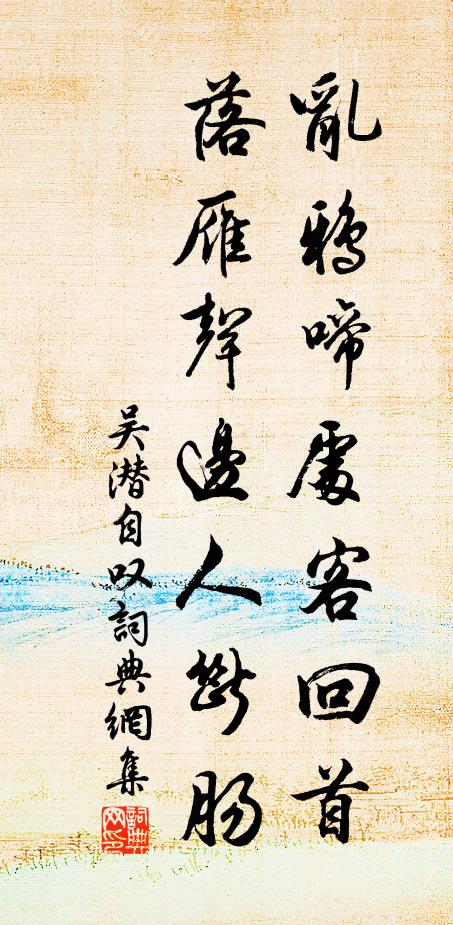 亂鴉啼處客回首
落雁聲邊人斷腸
吴潜自叹詞典網集
詞典網印